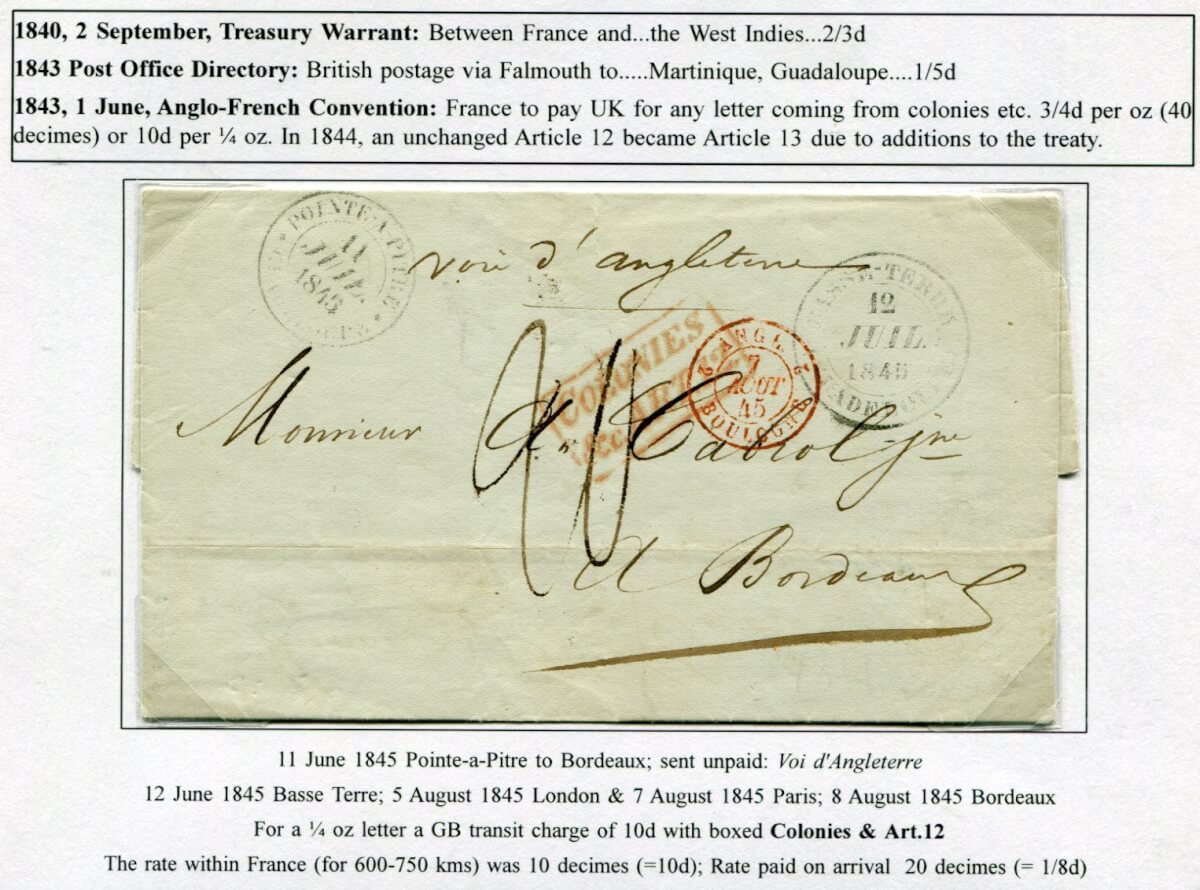 1840, 2 September, Treasury Warrant: Between France and...the West Indies...2/3d
1843 Post Office Directory: British postage via Falmouth to.....Martinique, Guadaloupe....1/5d
1843, 1 June, Anglo-French Convention: France to pay UK for any letter coming from colonies etc. 3/4d per oz (40
decimes) or 10d per ¼ oz. In 1844, an unchanged Article 12 became Article 13 due to additions to the treaty.
POINTE-A-PITRE
11
JUIL.
1845
voie d'angleterre
BASSE-TERRE
12
JUIL.
1845
COLONIES
&c. ART. 12
2 ANGL. 2
7
AOUT
45
BOULOGNE
Monsieur Cabrol jne
a Bordeaux
11 June 1845 Pointe-a-Pitre to Bordeaux; sent unpaid: Voi d'Angleterre
12 June 1845 Basse Terre; 5 August 1845 London & 7 August 1845 Paris; 8 August 1845 Bordeaux
For a ¼ oz letter a GB transit charge of 10d with boxed Colonies & Art.12
The rate within France (for 600-750 kms) was 10 decimes (=10d); Rate paid on arrival 20 decimes (= 1/8d)